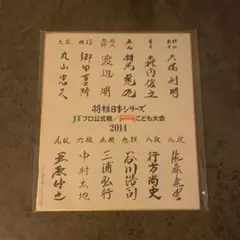 久保利明
竜王
森内俊之
羽生善治
渡辺明
九段
郷田真隆
九段
丸山忠久
将棋日本シリーズ
JTプロ公式戦/こども大会
2014
九段
佐藤康光
八段
行方尚史
九段
谷川浩司
九段
三浦弘行
六段
中村太地
九段
屋敷伸之